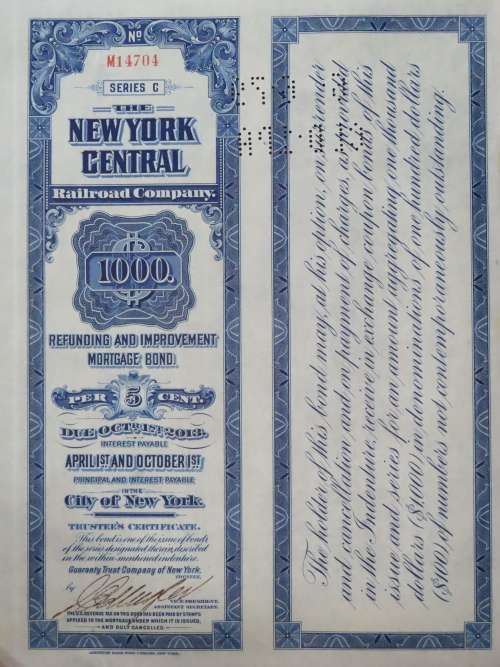 No
M14704
SERIES C
THE
NEW YORK
CENTRAL
Railroad Company.
1000.
REFUNDING AND IMPROVEMENT
MORTGAGE BOND.
PER 5 CENT.
DUE OCTR. 1ST 2013.
INTEREST PAYABLE
APRIL 1ST AND OCTOBER 1ST
PRINCIPAL AND INTEREST PAYABLE
IN THE
City of New York.
TRUSTEE'S CERTIFICATE.
This bond is one of the issue of bonds
of the series designated therein, described
in the within-mentioned indenture.
Guaranty Trust Company of New York,
TRUSTEE,
by
VICE-PRESIDENT.
ASSISTANT SECRETARY.
THE U.S. REVENUE TAX ON THIS BOND HAS BEEN PAID BY STAMPS
AFFIXED TO THE MORTGAGE UNDER WHICH IT IS ISSUED,
AND DULY CANCELLED.
AMERICAN BANK NOTE COMPANY, NEW YORK.
The holder of this bond may, at his option, on surrender
and cancellation and on payment of charges, as provided
in the Indenture, receive in exchange, coupon bonds of this
issue and series for an amount aggregating one thousand
dollars ($1,000) in denominations of one hundred dollars
($100) of numbers not contemporaneously outstanding.